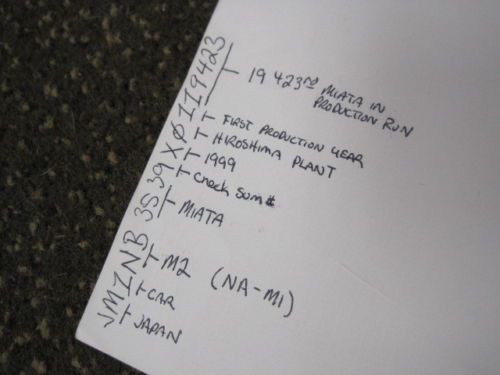 JM1NB3539XØ119423
19423RD MIATA IN
PRODUCTION RUN
FIRST PRODUCTION YEAR
HIROSHIMA PLANT
1999
Check sum #
MIATA
M2 (NA-M1)
CAR
JAPAN